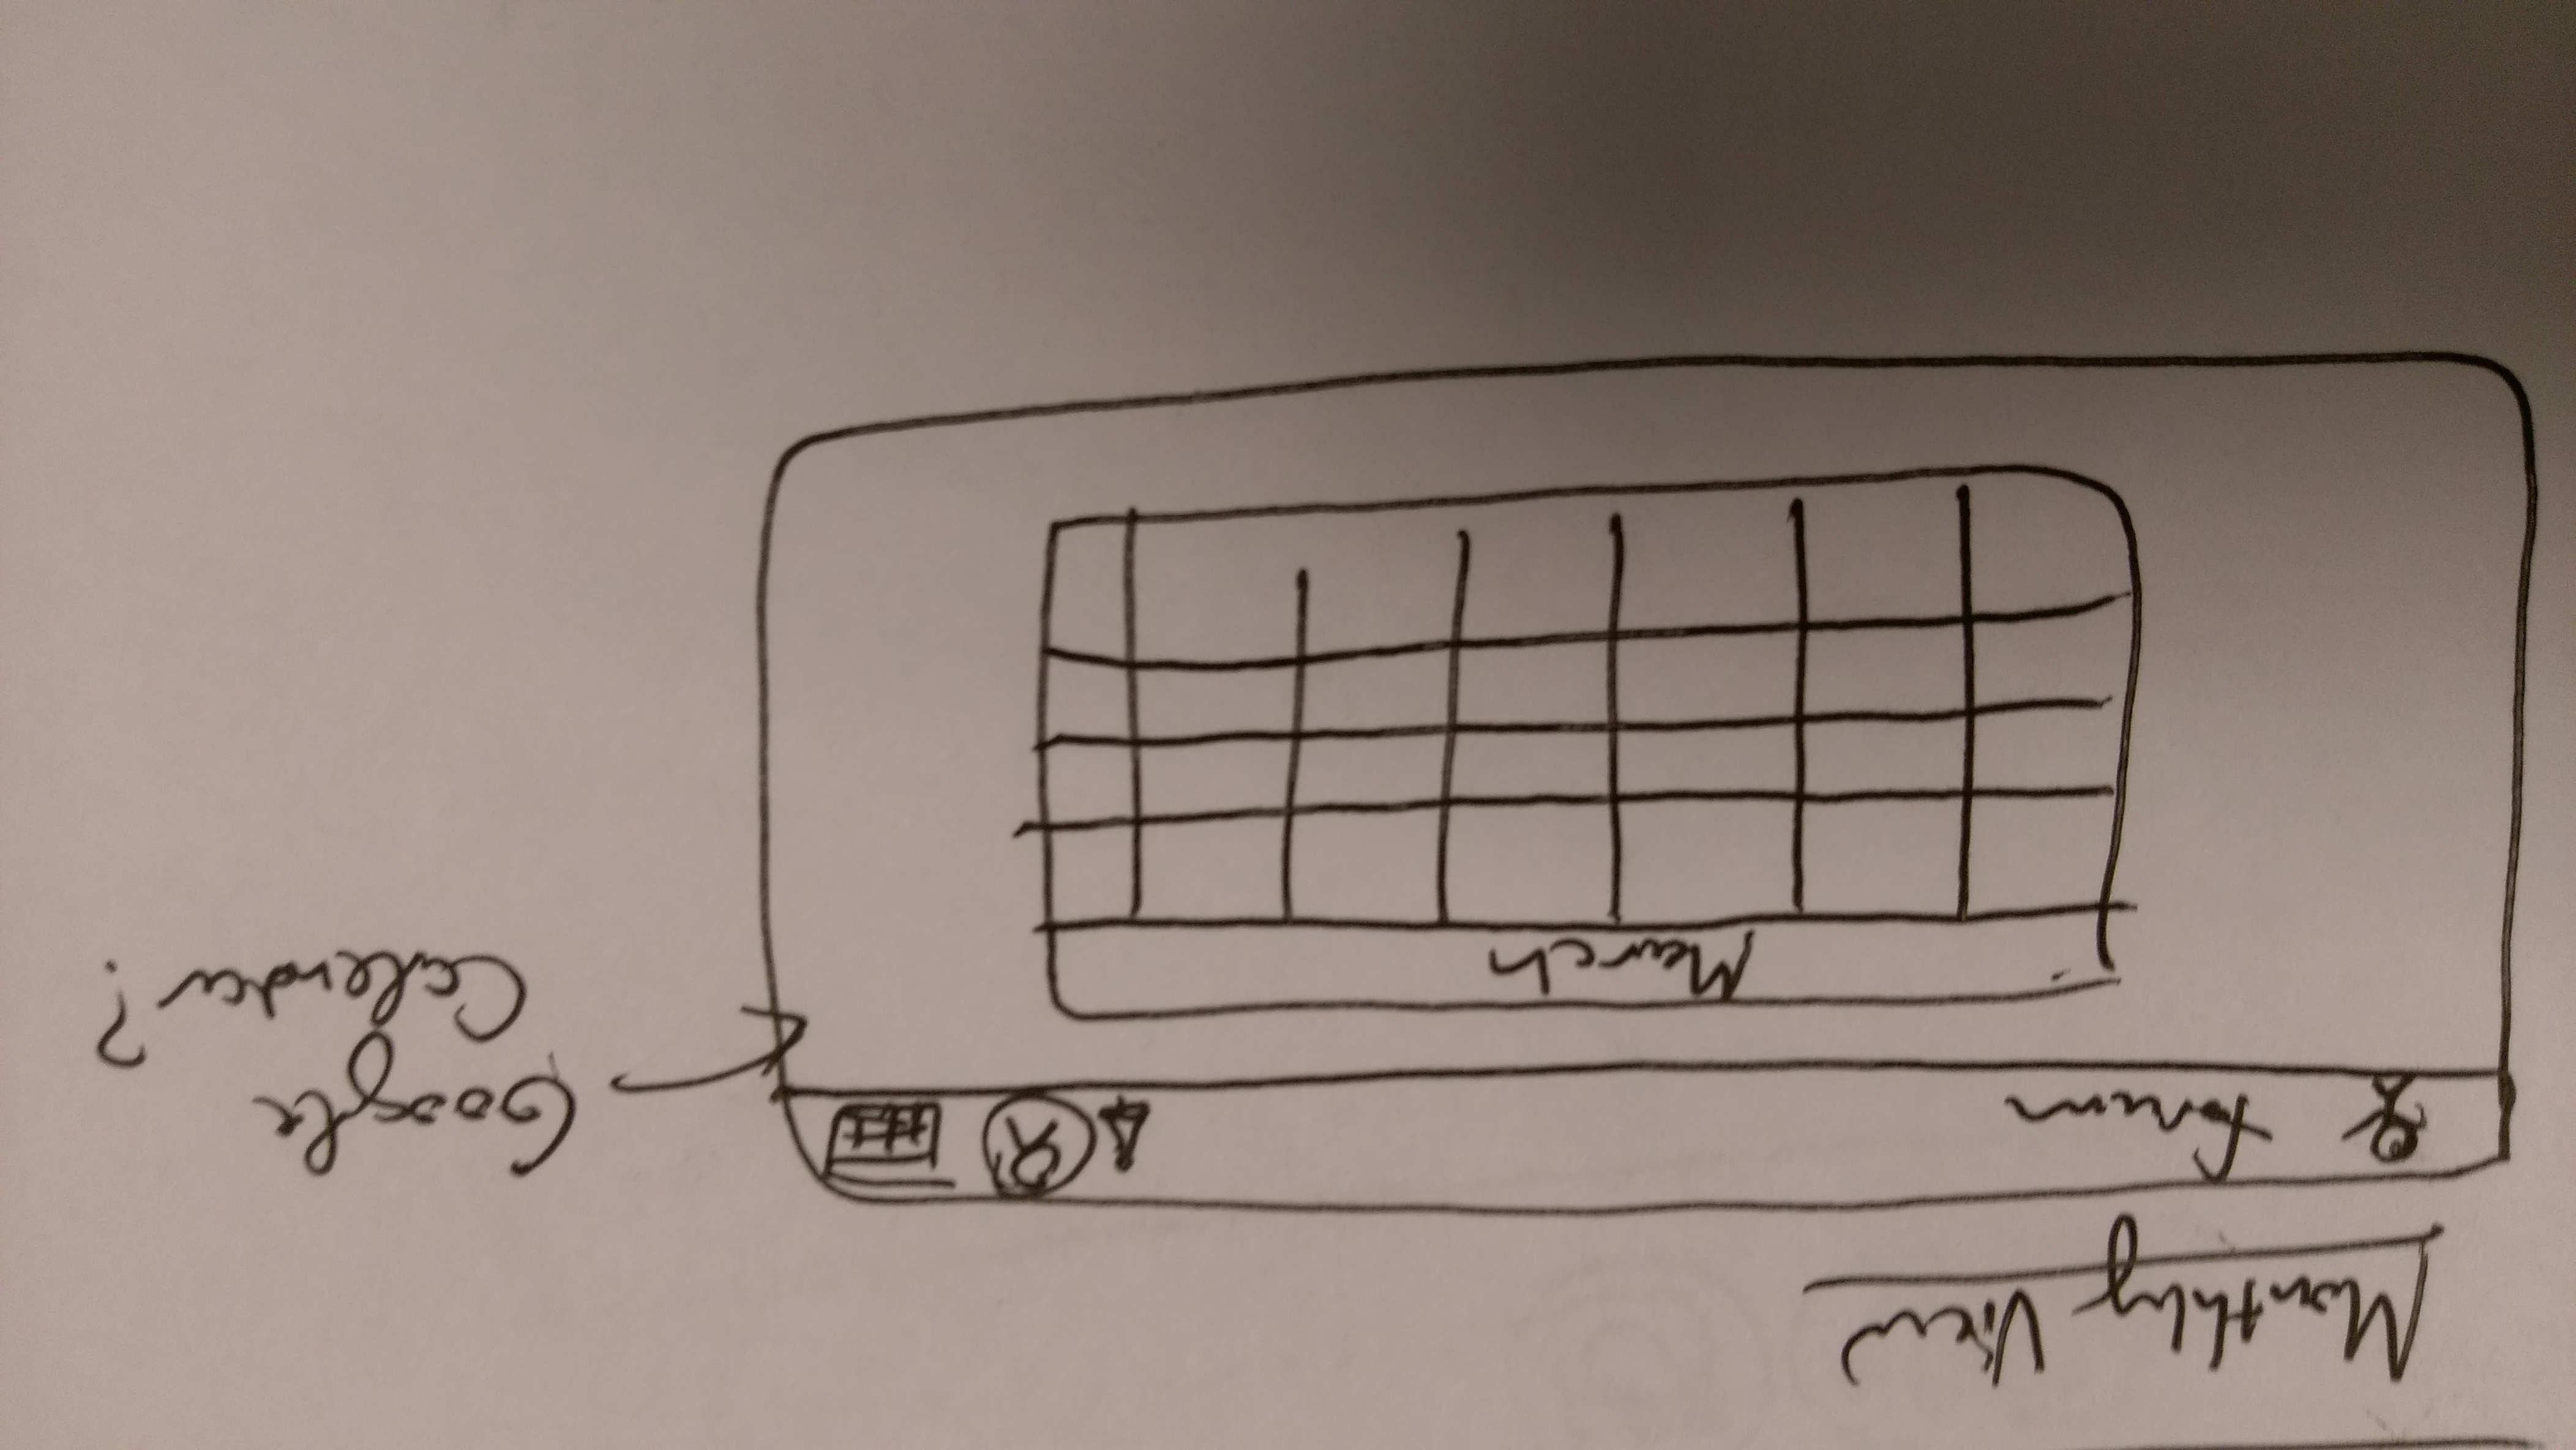 Monthly View
forum
March
Google
Calendar?